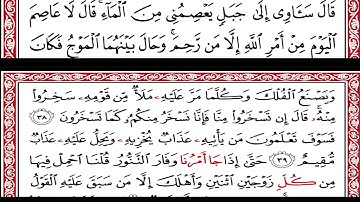 قَالَ سَـَٔاوِىٓ إِلَىٰ جَبَلٍ يَعْصِمُنِى مِنَ ٱلْمَآءِ ۚ قَالَ لَا عَاصِمَ
ٱلْيَوْمَ مِنْ أَمْرِ ٱللَّهِ إِلَّا مَن رَّحِمَ ۚ وَحَالَ بَيْنَهُمَا ٱلْمَوْجُ فَكَانَ
وَيَصْنَعُ ٱلْفُلْكَ وَكُلَّمَا مَرَّ عَلَيْهِ مَلَأٌ مِّن قَوْمِهِۦ سَخِرُوا۟
مِنْهُ ۚ قَالَ إِن تَسْخَرُوا۟ مِنَّا فَإِنَّا نَسْخَرُ مِنكُمْ كَمَا تَسْخَرُونَ ٣٨
فَسَوْفَ تَعْلَمُونَ مَن يَأْتِيهِ عَذَابٌ يُخْزِيهِ وَيَحِلُّ عَلَيْهِ عَذَابٌ
مُّقِيمٌ ٣٩ حَتَّىٰٓ إِذَا جَا أَمْرُنَا وَفَارَ ٱلتَّنُّورُ قُلْنَا ٱحْمِلْ فِيهَا
مِن كُلِّ زَوْجَيْنِ ٱثْنَيْنِ وَأَهْلَكَ إِلَّا مَن سَبَقَ عَلَيْهِ ٱلْقَوْلُ